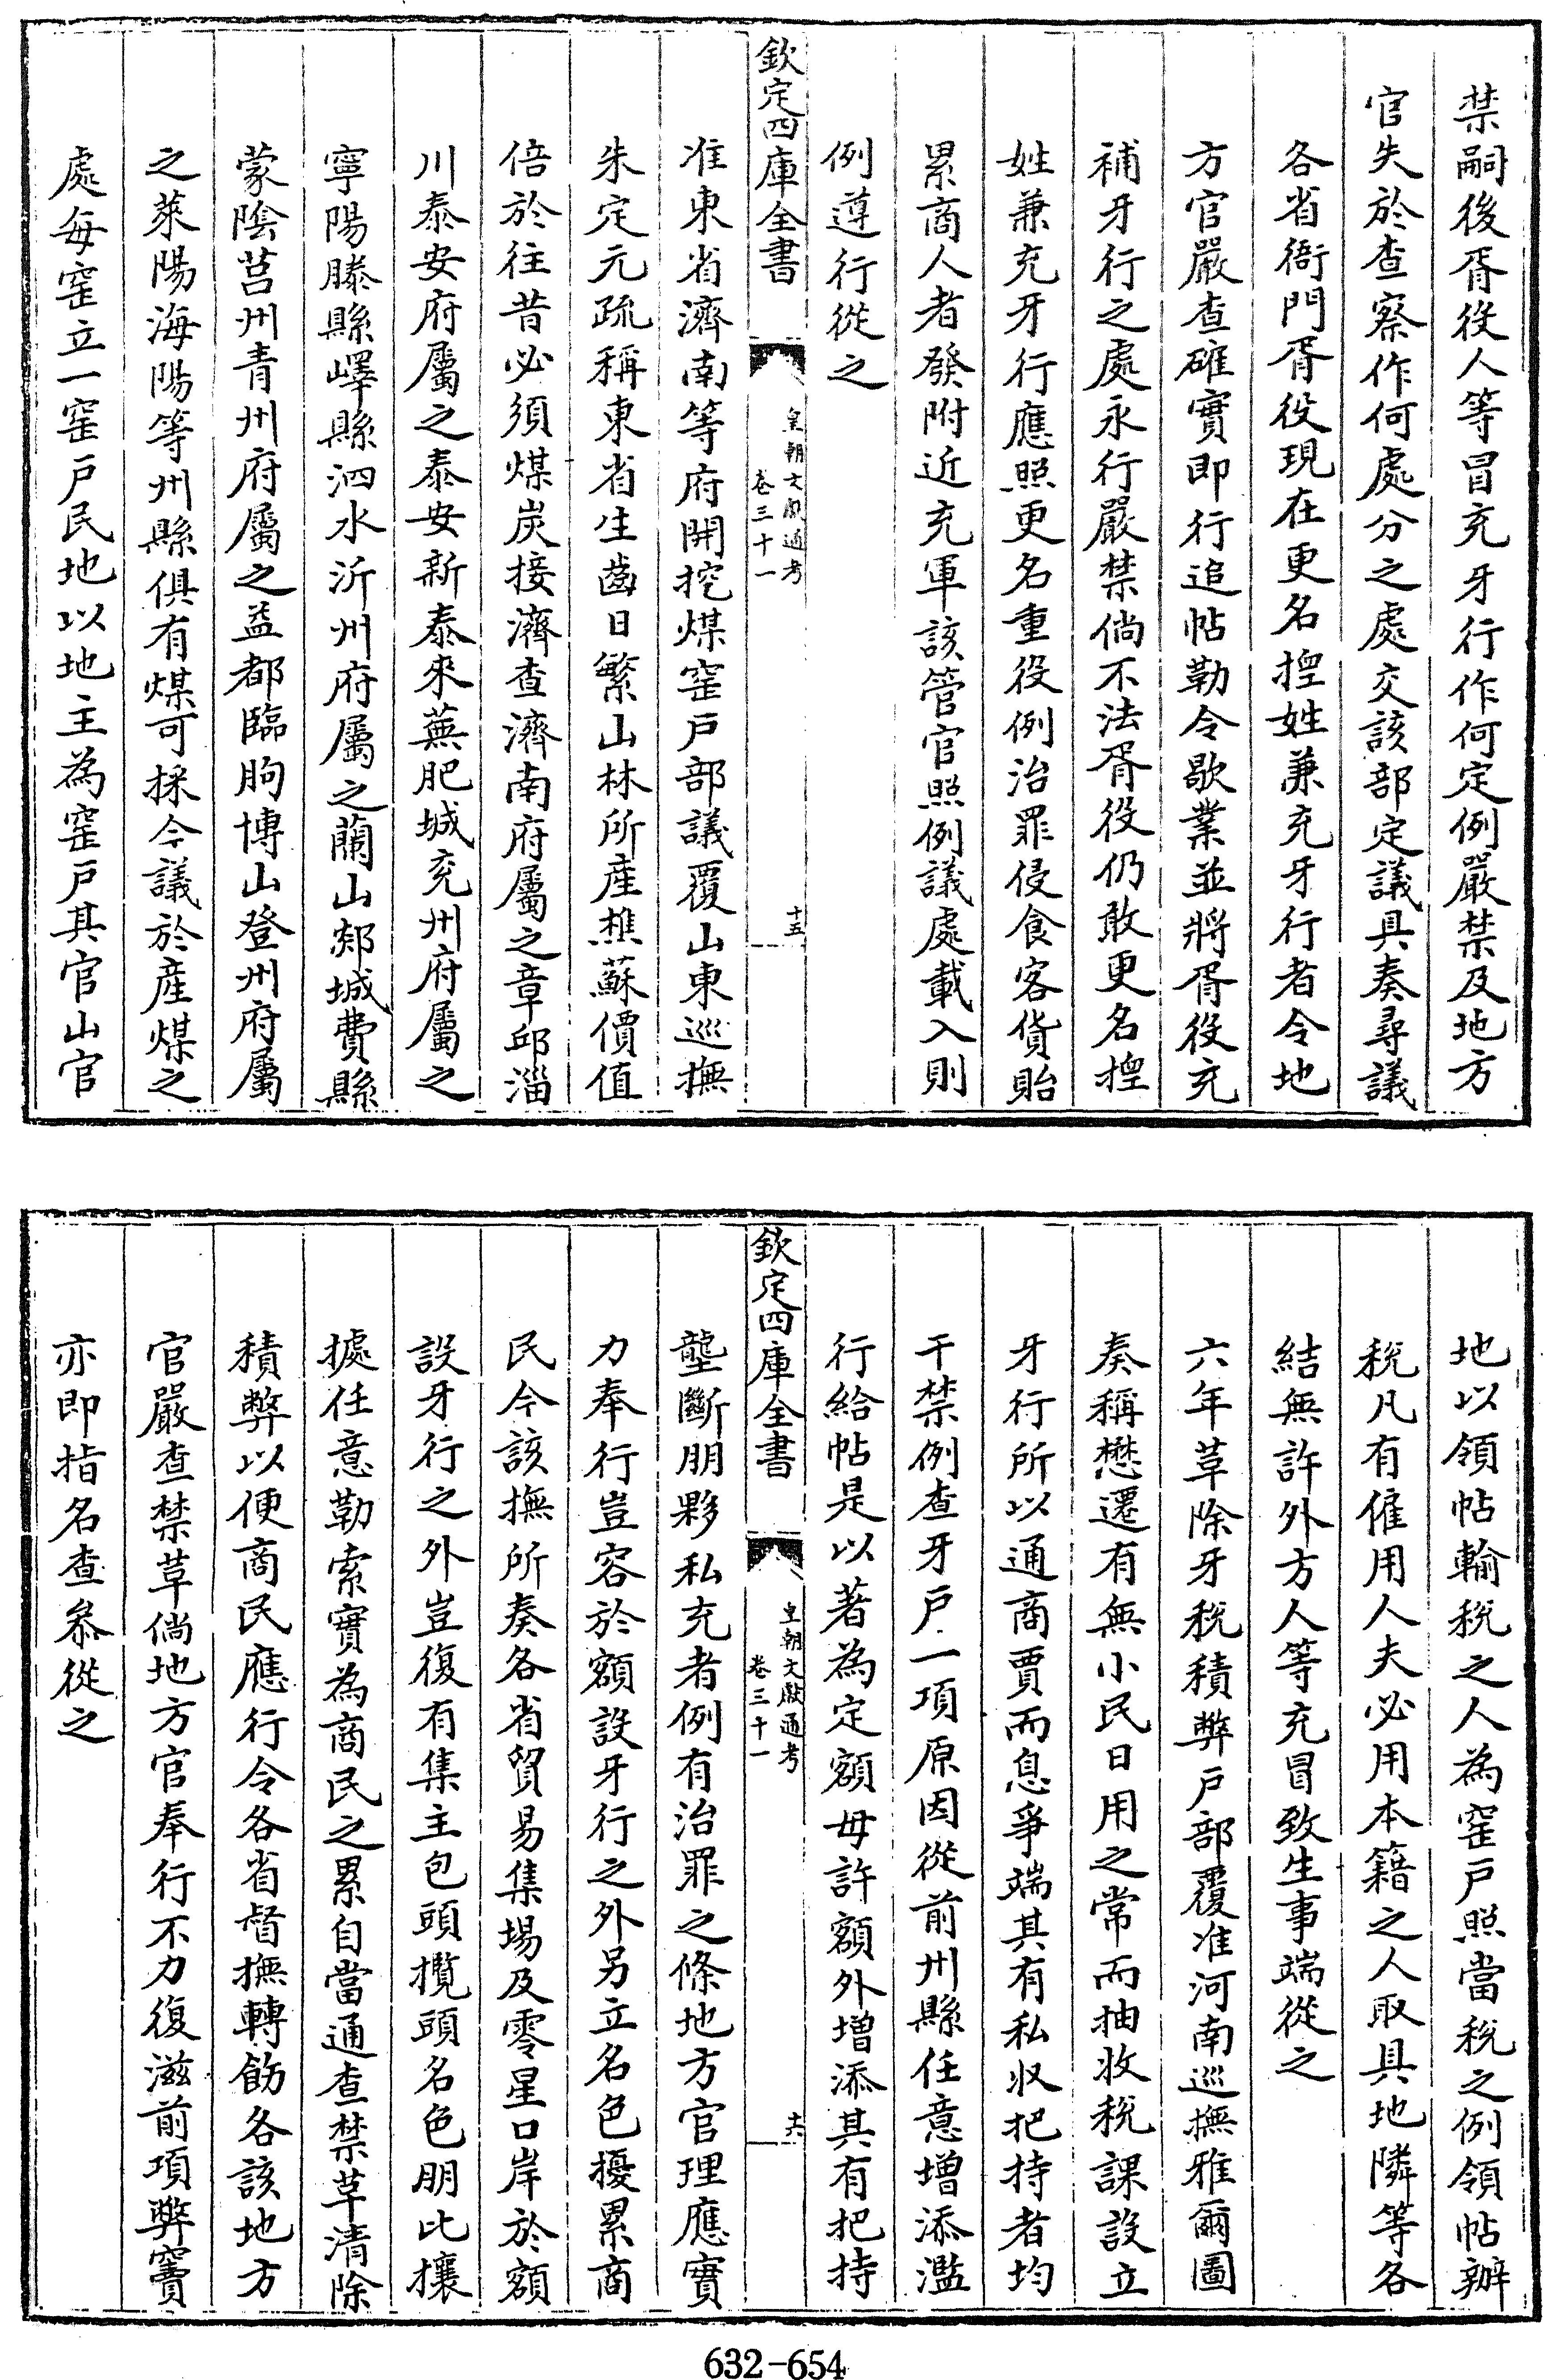 禁嗣後胥役人等冒充牙行作何定例嚴禁及地方
官失於查察作何處分之處交該部定議具奏尋議
各省衙門胥役現在更名捏姓兼充牙行者令地
方官嚴查確實即行追帖勒令歇業並將胥役充
補牙行之處永行嚴禁倘不法胥役仍敢更名捏
姓兼充牙行應照更名重役例治罪侵食客貨貽
累商人者發附近充軍該管官照例議處載入則
例遵行從之
欽定四庫全書
皇朝文獻通考
卷三十一
十五
准東省濟南等府開挖煤窑戶部議覆山東巡撫
朱定元疏稱東省生齒日繁山林所産樵蘇價值
倍於往昔必須煤炭接濟查濟南府屬之章邱淄
川泰安府屬之泰安新泰來蕪肥城兖州府屬之
寧陽滕縣嶧縣泗水沂州府屬之蘭山郯城費縣
蒙陰莒州青州府屬之益都臨朐博山登州府屬
之萊陽海陽等州縣俱有煤可採今議於産煤之
處每窑立一窑戶民地以地主為窑戶其官山官
地以領帖輸稅之人為窑戶照當稅之例領帖辦
稅凡有僱用人夫必用本籍之人取具地隣等各
結無許外方人等充冒致生事端從之
六年革除牙稅積弊戶部覆准河南巡撫雅爾圖
奏稱懋遷有無小民日用之常而抽收稅課設立
牙行所以通商賈而息爭端其有私收把持者均
干禁例查牙戶一項原因從前州縣任意增添濫
行給帖是以著為定額毋許額外增添其有把持
欽定四庫全書
皇朝文獻通考
卷三十一
十六
壟斷朋夥私充者例有治罪之條地方官理應實
力奉行豈容於額設牙行之外另立名色擾累商
民今該撫所奏各省貿易集場及零星口岸於額
設牙行之外豈復有集主包頭攬頭名色朋比攘
據任意勒索實為商民之累自當通查禁革清除
積弊以便商民應行令各省督撫轉飭各該地方
官嚴查禁革倘地方官奉行不力復滋前項弊竇
亦即指名查叅從之
632-654